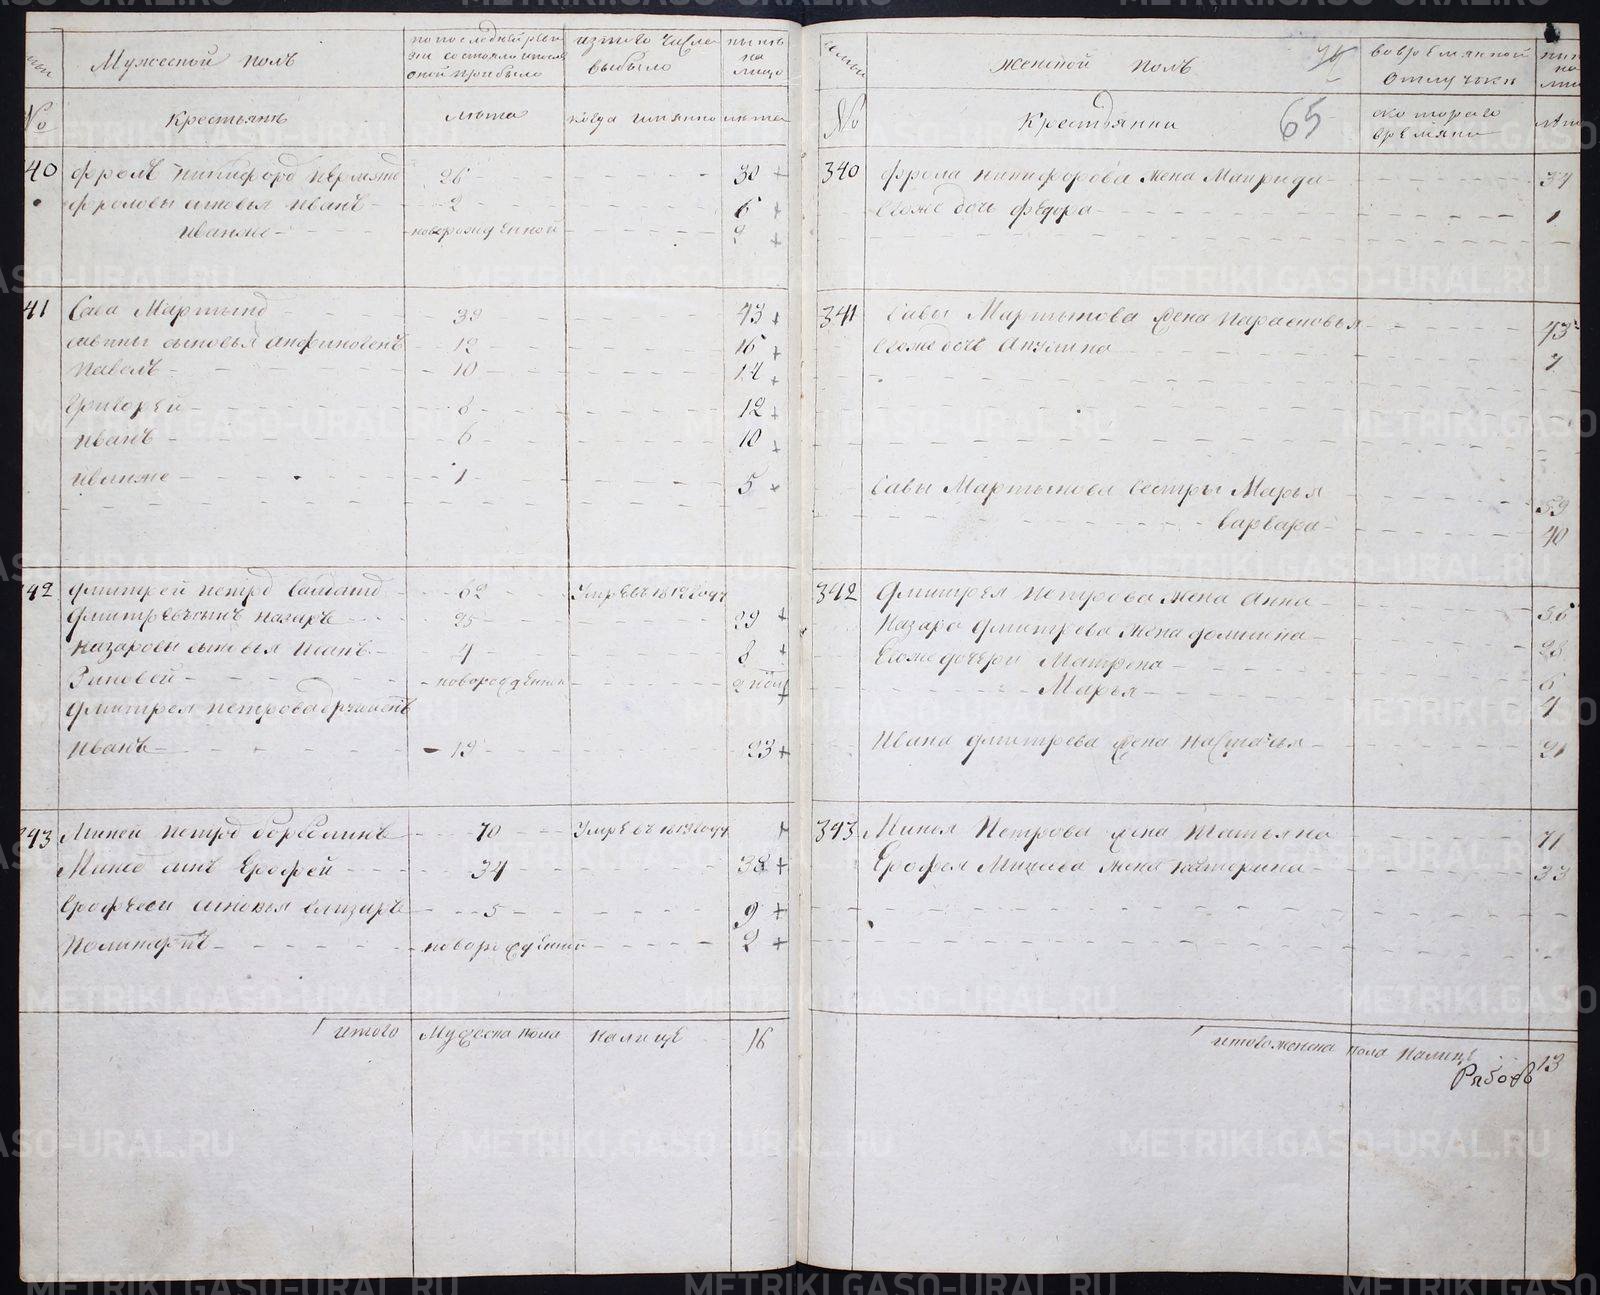 Мужеской полъ
по последней реви
зии состояло и после
оной прибыло
изтого числа
выбыло
ныне
на
лицо
№
Крестьяне
лета
когда имянно
лета
40 Фролъ Никифоровъ 26 30
Фроловы сыновья Иванъ 2 6
Иванже новорожденной
41 Сава Мартыновъ 39 43
Савины сыновья Анфиногенъ 12 16
Павелъ 10 14
Григорей 8 12
Иванъ 6 10
Иванже 1 5
342 Дмитрей Петровъ 62 Умре въ 1812 году
Дмитревъ сынъ Назаръ 25 29
Назаровы сыновья Иванъ 4 8
Зиновей новорожденной
Дмитрея Петрова другой сынъ
Иванъ 19 23
343 Миней Петровъ 70 Умре въ 1813 году
Минеев сынъ Ерофей 34 38
Ерофеевы сыновья Елизаръ 5 9
новорожденной 2
Итого Мужеска пола налице 16
Женской полъ
76
во временной
отлучке
№
Крестьянки
65
скотораго
времяни
340 Фрола Никифорова жена Маврида 34
Егоже дочь Федора 1
341 Савы Мартынова жена Парасковья 43
Егоже дочь Акулина 7
Савы Мартынова сестры Марья 59
Варвара 40
342 Дмитрея Петрова жена Анна 56
Назара Дмитрева жена Домнина 28
Егоже дочери Матрена 6
Марья 4
Ивана Дмитрева жена Настасья 21
343 Минея Петрова жена Татьяна 71
Ерофея Минеева жена Катерина 33
Итого женска пола налице 13
Рябовъ
METRIKI.GASO-URAL.RU